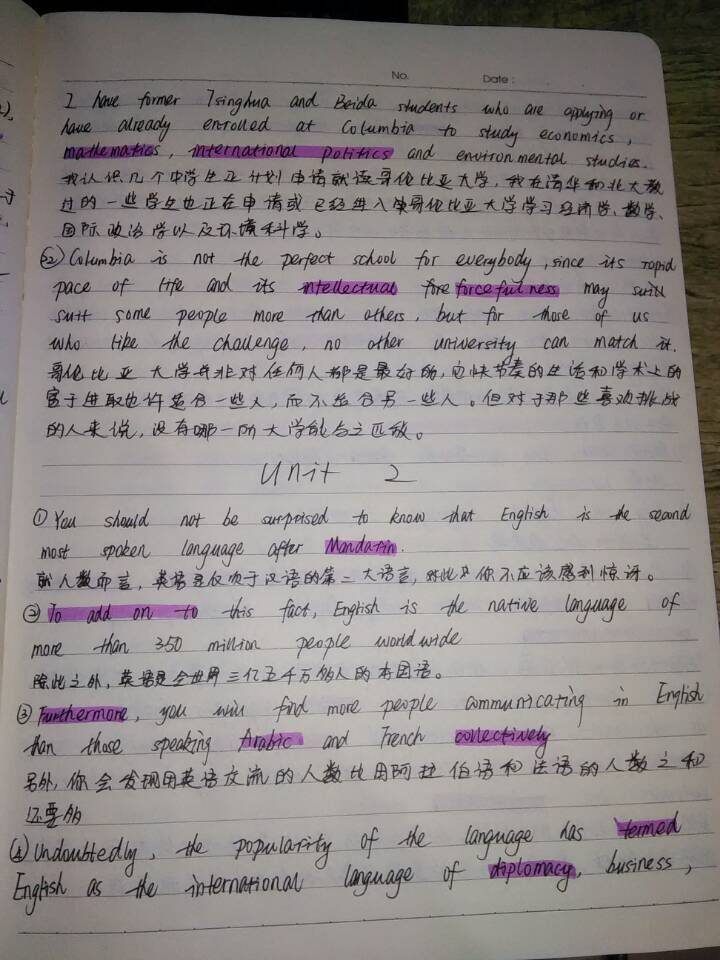 No.
Date:
I have former Tsinghua and Beida students who are applying or
have already enrolled at Columbia to study economics,
mathematics, international politics and environmental studies.
我认识几个中学生正计划申请就读哥伦比亚大学,我在清华和北大教
过的一些学生也正在申请或已经进入哥伦比亚大学学习经济学、数学、
国际政治学以及环境科学。
㉒ Columbia is not the perfect school for everybody, since its rapid
pace of life and its intellectual fore forcefulness may suit
suit some people more than others, but for those of us
who like the challenge, no other university can match it.
哥伦比亚大学并非对任何人都是最好的,它快节奏的生活和学术上的
富于进取也许适合一些人,而不适合另一些人。但对于那些喜欢挑战
的人来说,没有哪一所大学能与之匹敌。
Unit 2
① You should not be surprised to know that English is the second
most spoken language after Mandarin.
就人数而言,英语是仅次于汉语的第二大语言,对此你不应该感到惊讶。
② To add on to this fact, English is the native language of
more than 350 million people worldwide
除此之外,英语是全世界三亿五千万多人的本国语。
③ Furthermore, you will find more people communicating in English
than those speaking Arabic and French collectively
另外,你会发现用英语交流的人数比用阿拉伯语和法语的人数之和
还要多
④ Undoubtedly, the popularity of the language has termed
English as the international language of diplomacy, business,